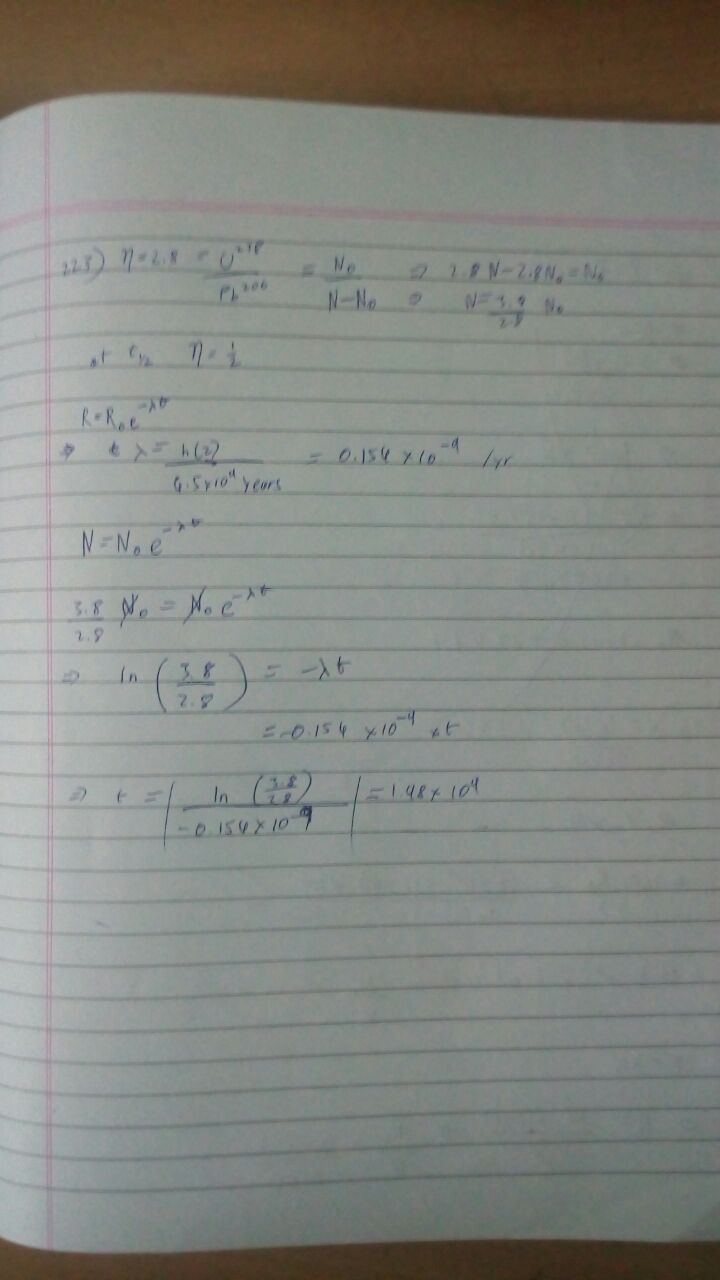 223) η = 2.8 = U²³⁸/Pb²⁰⁶ = N₀/(N-N₀) ⇒ 2.8N - 2.8N₀ = N₀
⇒ N = 3.8/2.8 N₀
at t₁/₂ η = 1/2
R = R₀e^(-λt)
⇒ λ = ln(2)/(4.5×10⁹ years) = 0.154 × 10⁻⁹ /yr
N = N₀ e^(-λt)
3.8/2.8 N₀ = N₀ e^(-λt)
⇒ ln (3.8/2.8) = -λt
= -0.154 × 10⁻⁹ × t
⇒ t = | ln (3.8/2.8) / (-0.154 × 10⁻⁹) | = 1.98 × 10⁹